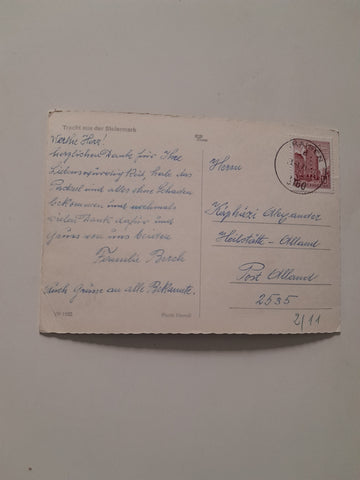 Tracht aus der Steiermark
Werthe Herr!
herzlichen Dank für Ihre
Liebenswürdig Keit, habe das
Packerl und alles ohne Schaden
bekommen und nochmals
vielen Dank dafür und
Grüss von uns beiden
Familie Berch
auch Grüsse an alle Bekannte.
VK 1102
Herrn
Alexander
Heilstätte - Alland
Post Alland
2535
2/11